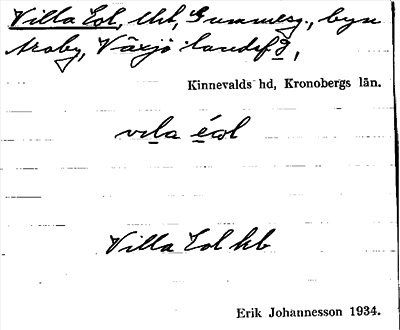 Villa Eol, lht, Gunnmesg., byn
Araby, Växjö landsf g,
Kinnevalds hd, Kronobergs län.
vila éol
Villa Eol kb
Erik Johannesson 1934.